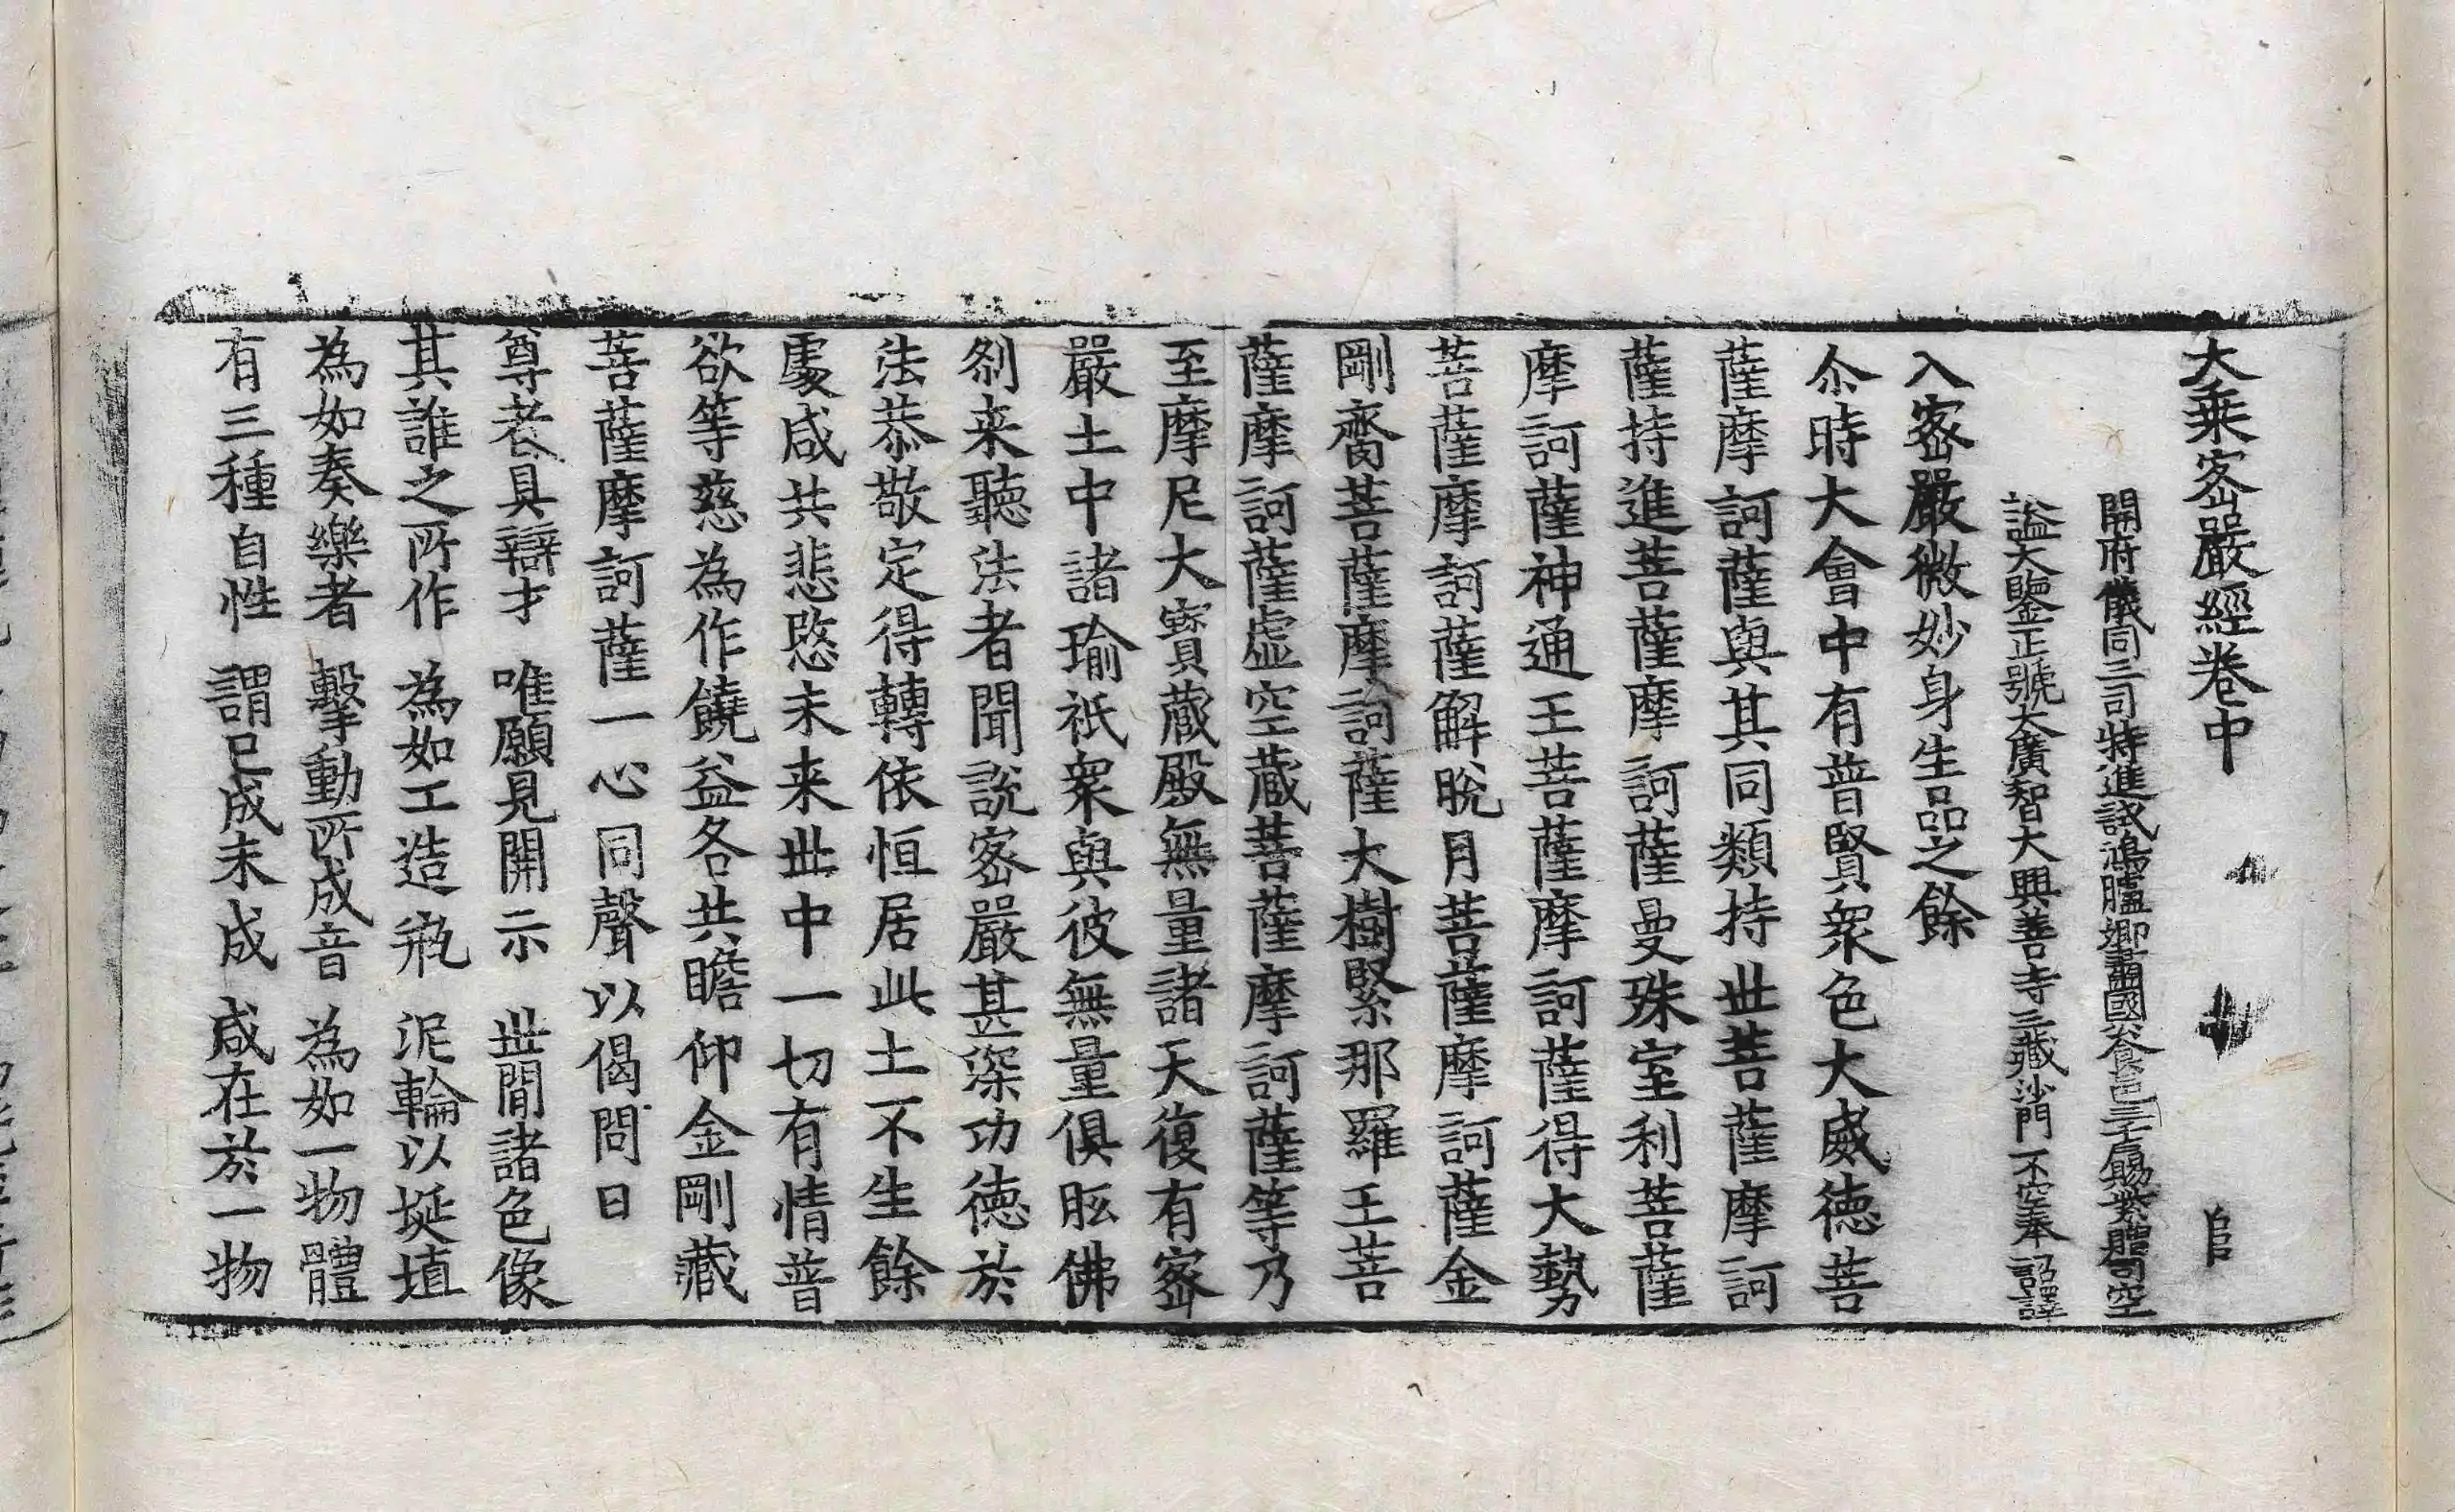 大乗宻嚴經卷中
開府儀同三司特進試鴻臚卿肅國公食邑三千戶賜紫贈司空
謚大鑒正號大廣智大興善寺三藏沙門不空奉 詔譯
入宻嚴微妙身生品之餘
尒時大會中有普賢衆色大威德菩
薩摩訶薩與其同類持世菩薩摩訶
薩持進菩薩摩訶薩曼殊室利菩薩
摩訶薩神通王菩薩摩訶薩得大勢
菩薩摩訶薩解脫月菩薩摩訶薩金
剛齋菩薩摩訶薩大樹緊那羅王菩
薩摩訶薩虛空藏菩薩摩訶薩等乃
至摩尼大寶藏殿無量諸天復有宻
嚴土中諸瑜祇衆與彼無量俱胝佛
刹来聽法者聞說宻嚴甚深功德於
法恭敬定得轉依恒居此土不生餘
處咸共悲愍未来世中一切有情普
欲等慈為作饒益各共瞻仰金剛藏
菩薩摩訶薩一心同聲以偈問曰
尊者具辯才 唯願見開示 世間諸色像
其誰之所作 為如工造瓶 泥輪以埏埴
為如奏樂者 擊動所成音 為如一物體
有三種自性 謂已成未成 咸在於一物